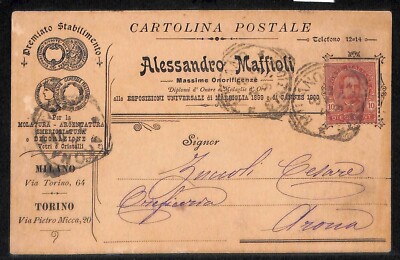 CARTOLINA POSTALE
Premiato Stabilimento
Telefono 12-14
Alessandro Maffioli
Massime Onorificenze
Diplomi d'Onore e Medaglie d'Oro
alle ESPOSIZIONI UNIVERSALI di MARSIGLIA 1899 e di CANNES 1899
Per la
MOLATURA - ARGENTATURA
SMERIGLIATURA
e DECORAZIONE di
Vetri e Cristalli
MILANO
Via Torino, 64
TORINO
Via Pietro Micca, 20
10 10
Signor
Cesare
Arona